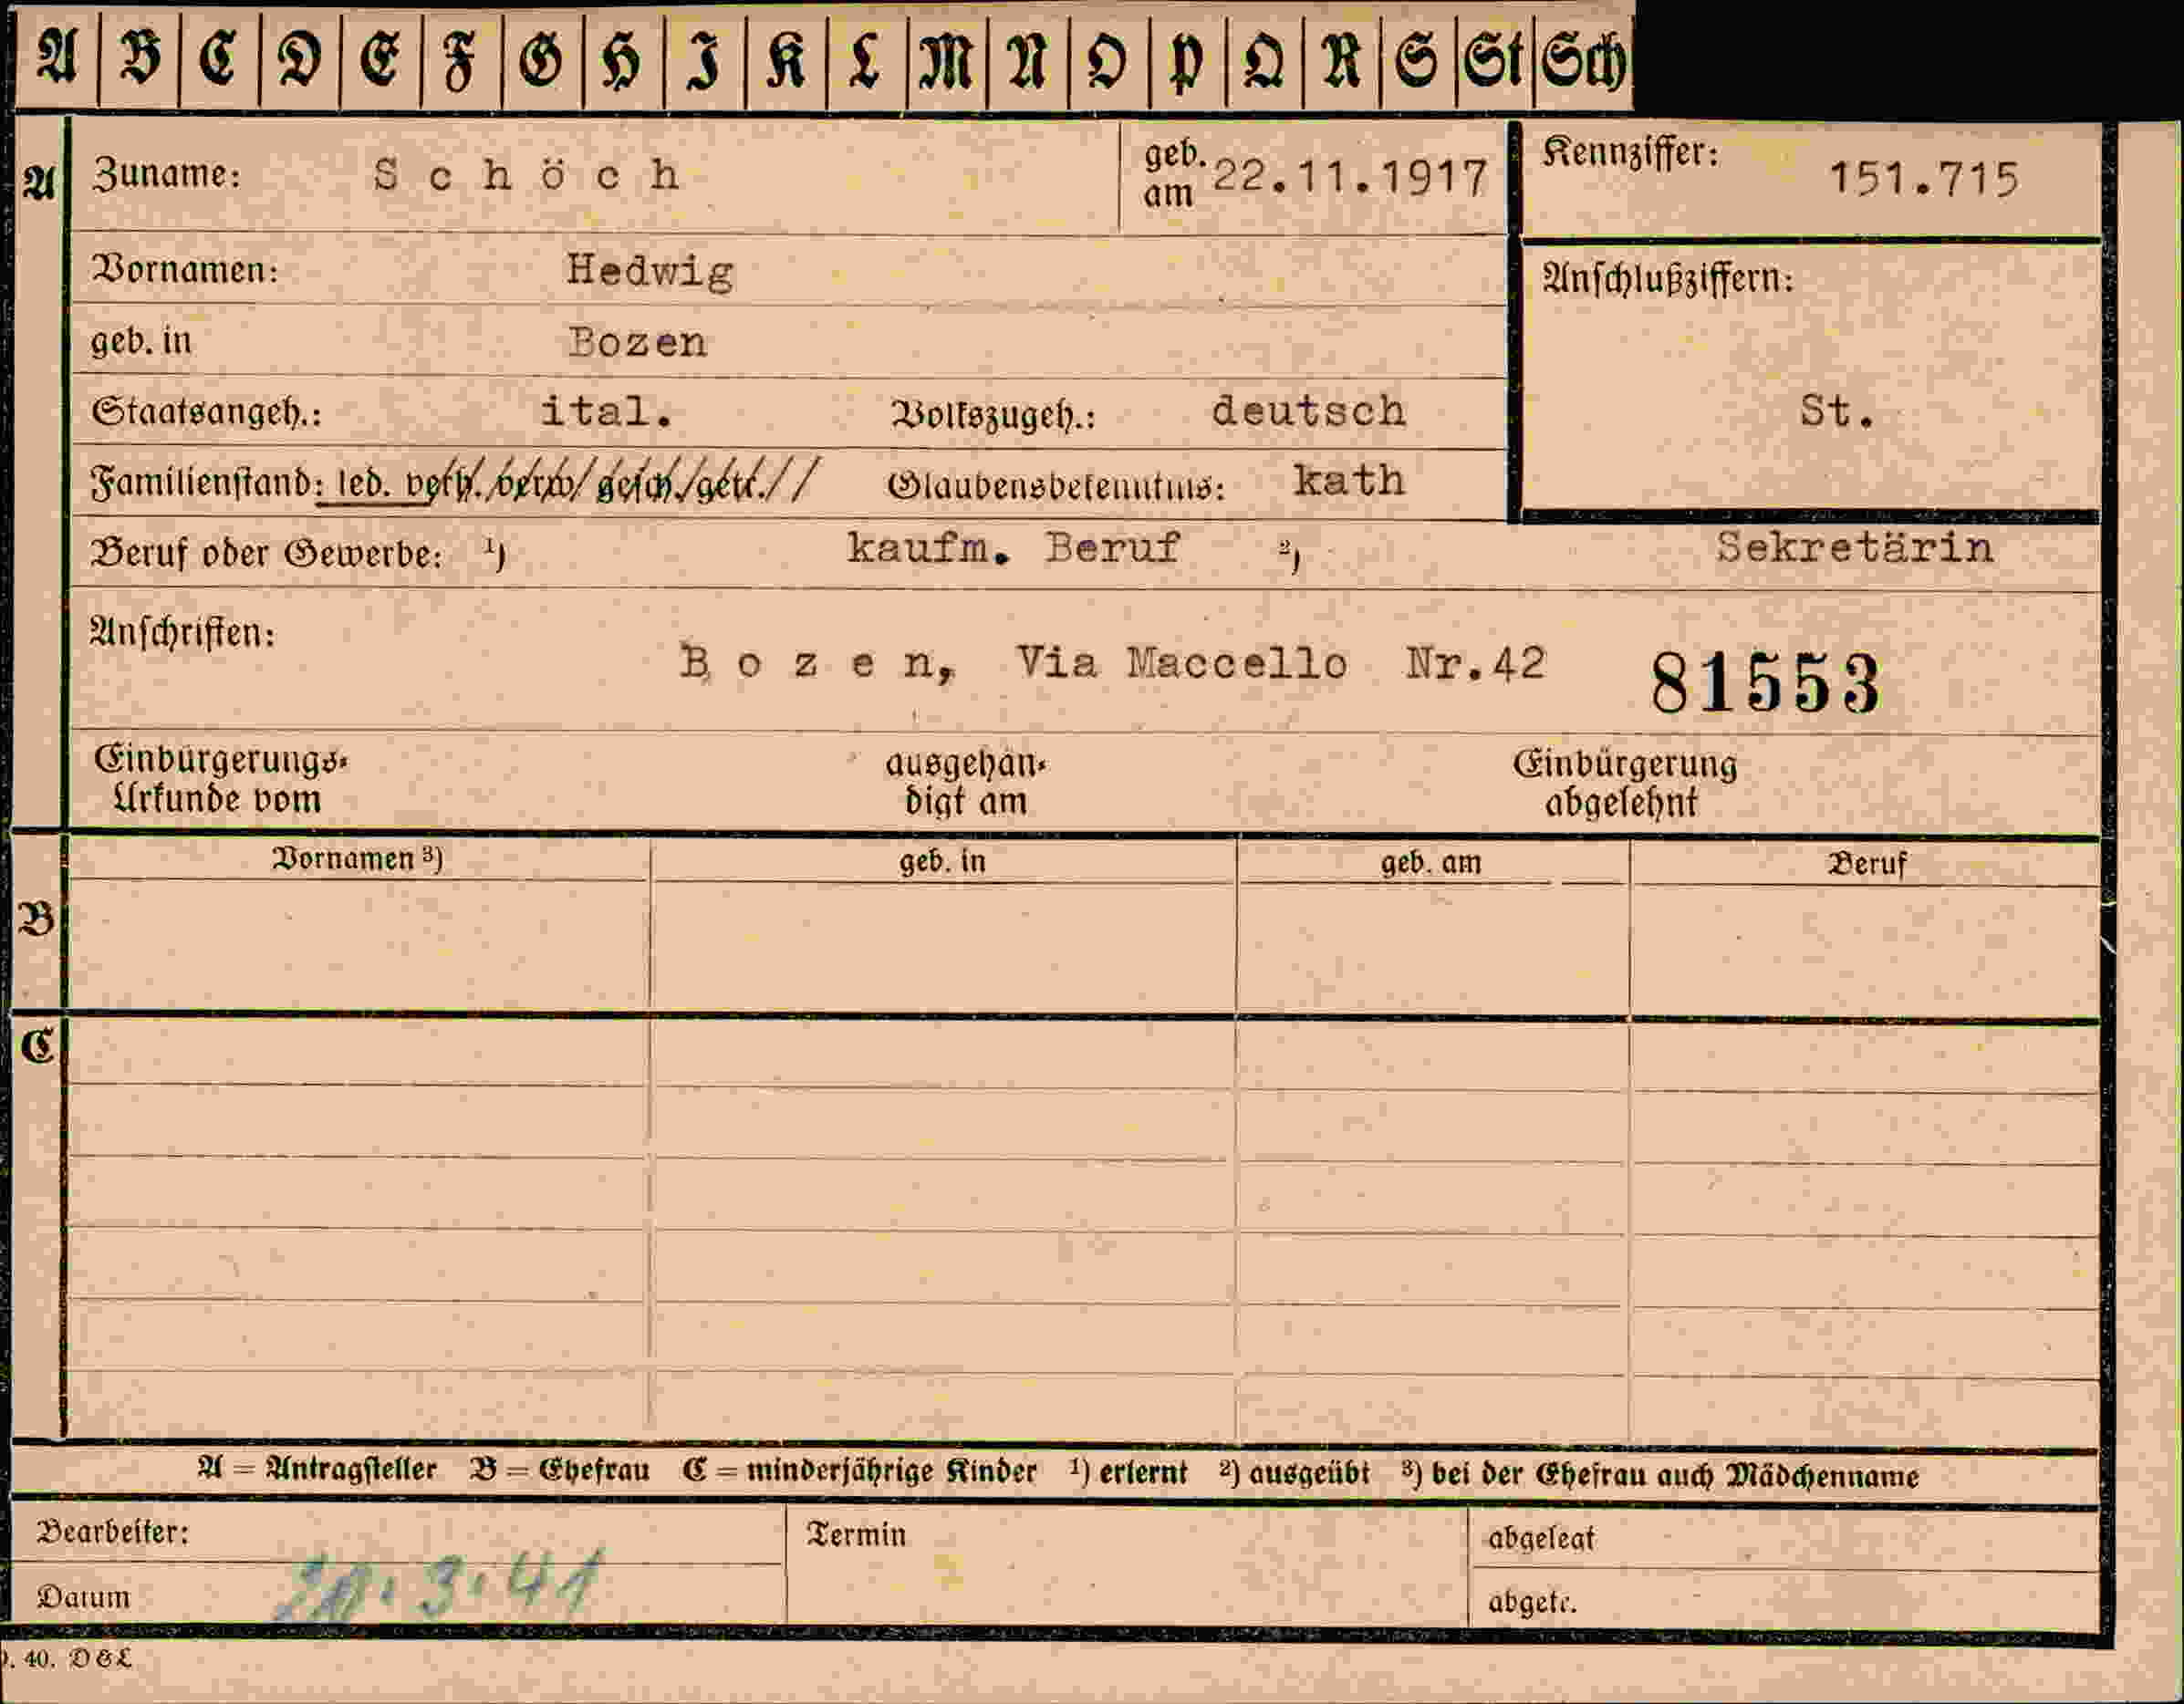 A B C D E F G H I K L M N O P Q R S St Sch
A Zuname: Schöch geb. am 22.11.1917 Kennziffer: 151.715
Vornamen: Hedwig Anschlußziffern:
geb. in Bozen
Staatsangeh.: ital. Volkszugeh.: deutsch St.
Familienstand: led. verh. verw. gesch. getr. Glaubensbekenntnis: kath
Beruf oder Gewerbe: 1) kaufm. Beruf 2) Sekretärin
Anschriften:
Bozen, Via Maccello Nr.42 81553
Einbürgerungs- ausgehän- Einbürgerung
Urkunde vom digt am abgelehnt
Vornamen 3) geb. in geb. am Beruf
B
C
A = Antragsteller B = Ehefrau C = minderjährige Kinder 1) erlernt 2) ausgeübt 3) bei der Ehefrau auch Mädchenname
Bearbeiter: Termin abgelegt
Datum 3.41 abgetr.
40. DGL